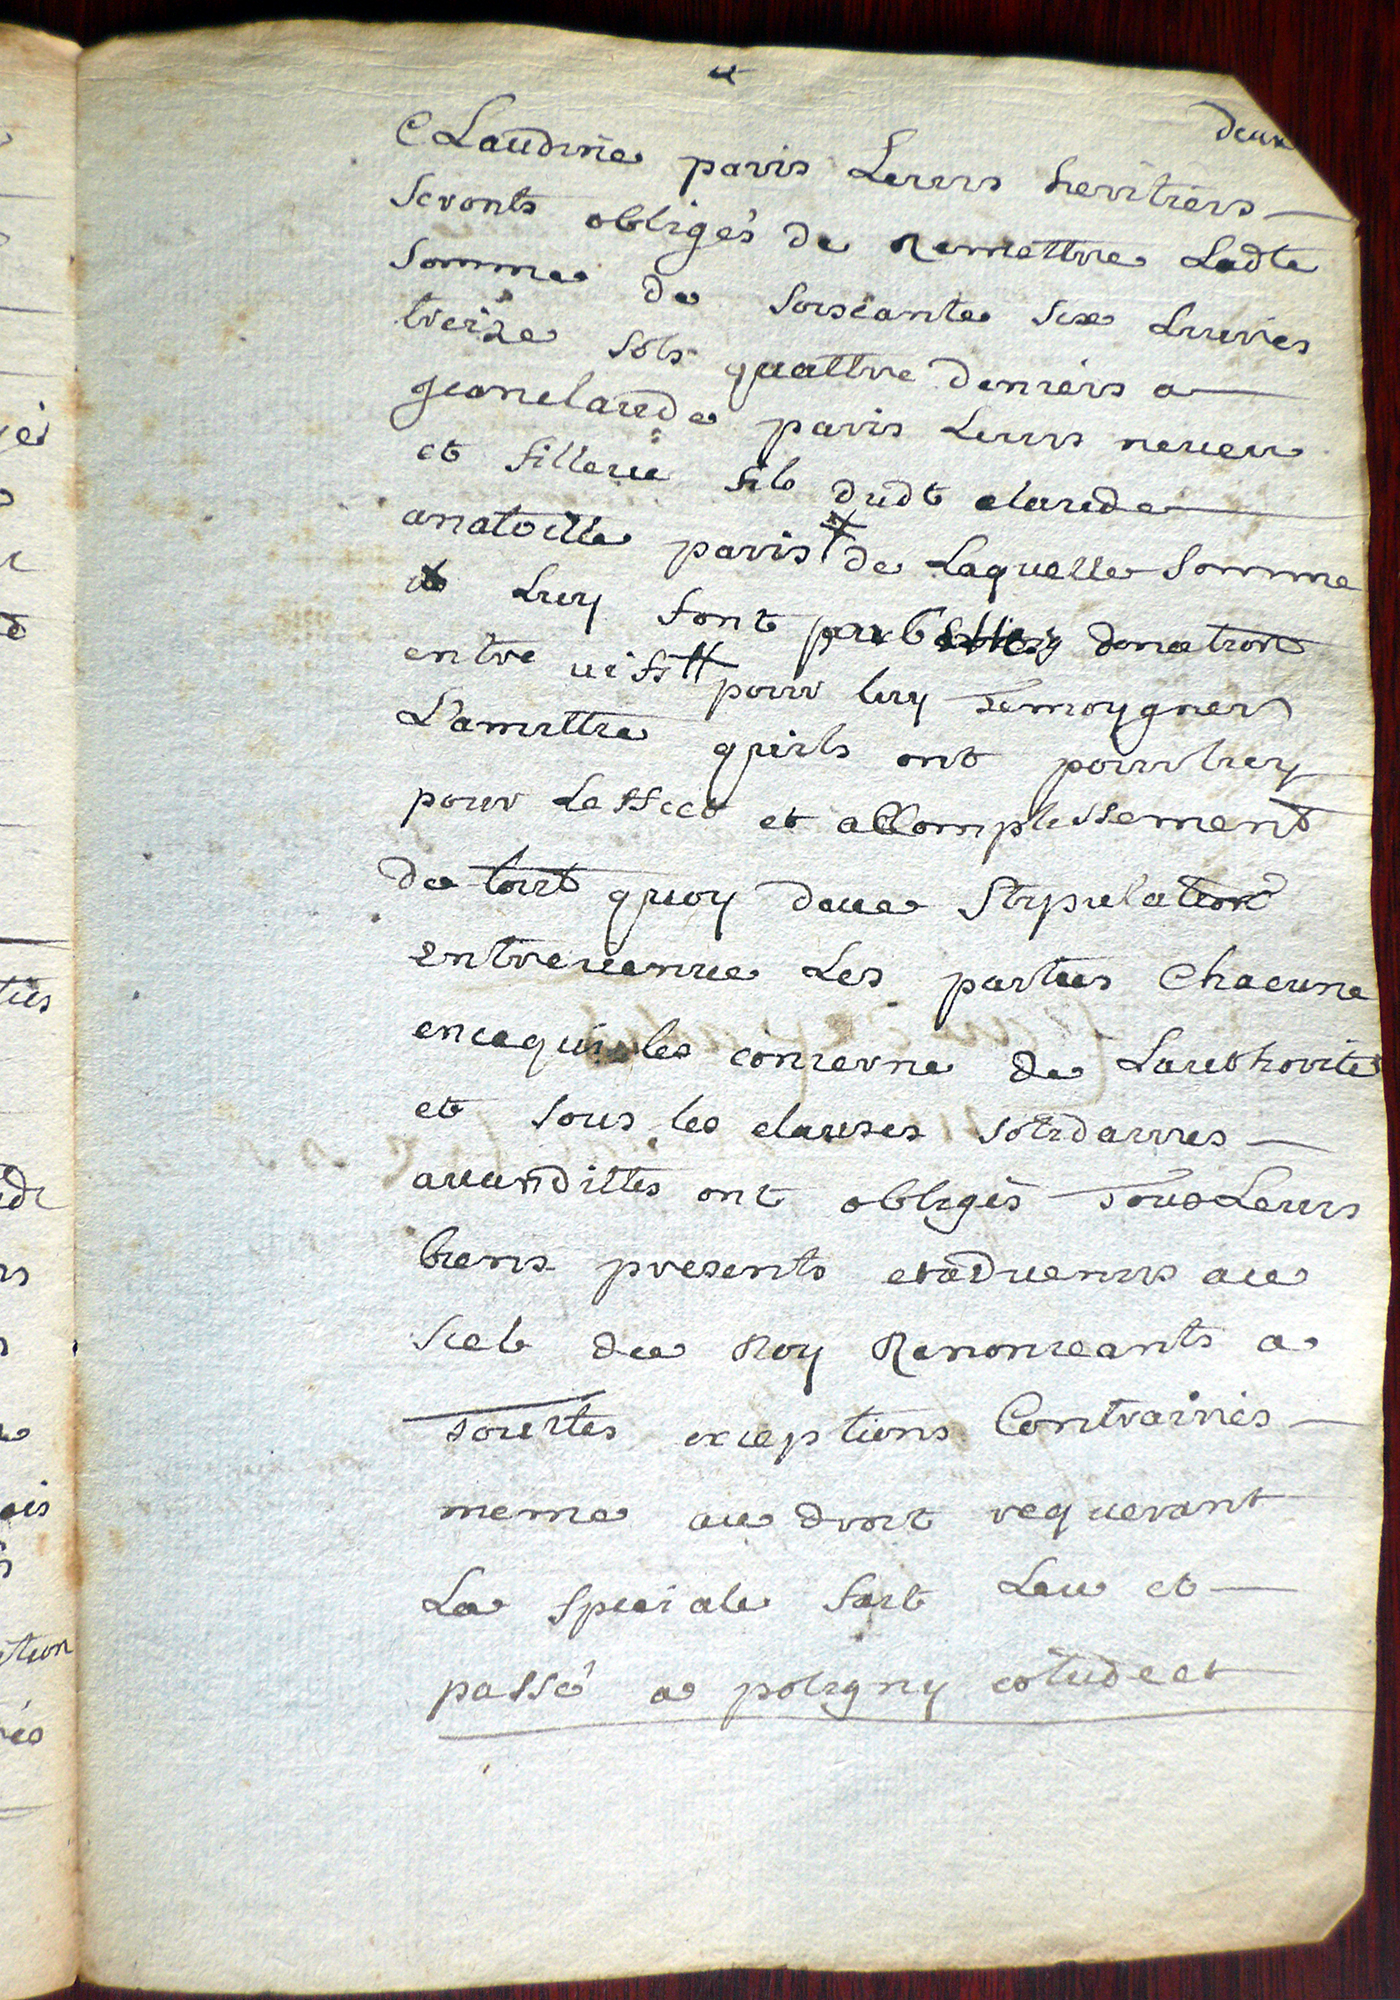 deux
Claudine paris Leurs heritiers
Seronts obligés de Remettre Ladte
Somme de soiscante six Livres
treize sols quattre deniers a
jeanclaude paris Leurs neueu
et filleue fils dudt claude
anatoille paris de Laquelle Somme
Luy font donation
entre uifs pour luy Temoygner
L'amittie quils ont pour luy
pour Leffect et accomplissement
de tout quoy deue Stipulation
Entreuenue Les parties Chacune
encequi les concerne de Lauthorité
et sous les clauses solidaires
auandittes ont obligés Tous Leurs
biens presents et aduenirs au
Scel du Roy Renonceants a
Touttes exceptions Contraires
meme au droit requerant
La speciale fait Leu et
passé a poligny etude et